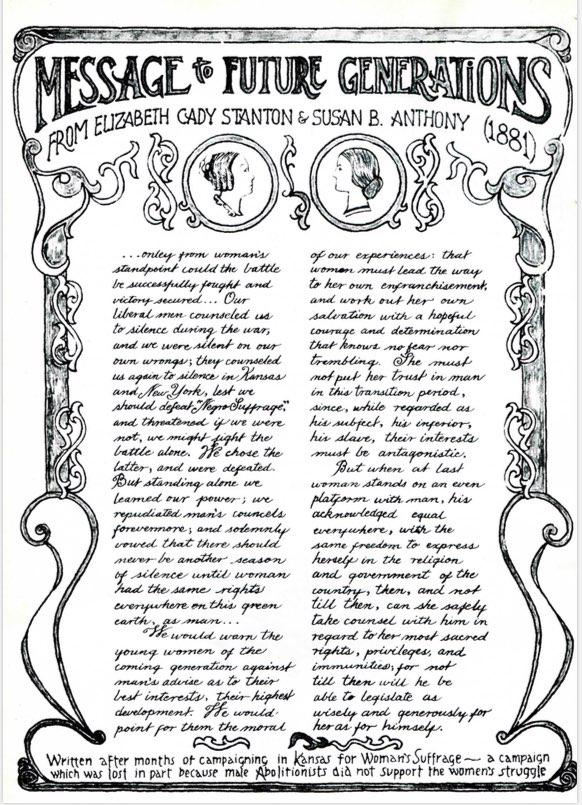 MESSAGE to FUTURE GENERATIONS
FROM ELIZABETH CADY STANTON & SUSAN B. ANTHONY (1881)
...onley from woman's
standpoint could the battle
be successfully fought and
victory secured... Our
liberal men counseled us
to silence during the war,
and we were silent on our
own wrongs; they counseled
us again to silence in Kansas
and New York, lest we
should defeat "Negro Suffrage,"
and threatened if we were
not, we might fight the
battle alone. We chose the
latter, and were defeated.
But standing alone we
learned our power; we
repudiated man's councels
forevermore; and solemnly
vowed that there should
never be another season
of silence until woman
had the same rights
everywhere on this green
earth, as man...
We would warn the
young women of the
coming generation against
man's advise as to their
best interests, their highest
development. We would
point for them the moral
of our experiences: that
woman must lead the way
to her own enfranchisement,
and work out her own
salvation with a hopeful
courage and determination
that knows no fear nor
trembling. She must
not put her trust in man
in this transition period,
since, while regarded as
his subject, his inferior,
his slave, their interests
must be antagonistic.
But when at last
woman stands on an even
platform with man, his
acknowledged equal
everywhere, with the
same freedom to express
herself in the religion
and government of the
country, then, and not
till then, can she safely
take counsel with him in
regard to her most sacred
rights, privileges, and
immunities; for not
till then will he be
able to legislate as
wisely and generously for
her as for himself.
Written after months of campaigning in Kansas for Woman's Suffrage — a campaign
which was lost in part because male Abolitionists did not support the women's struggle